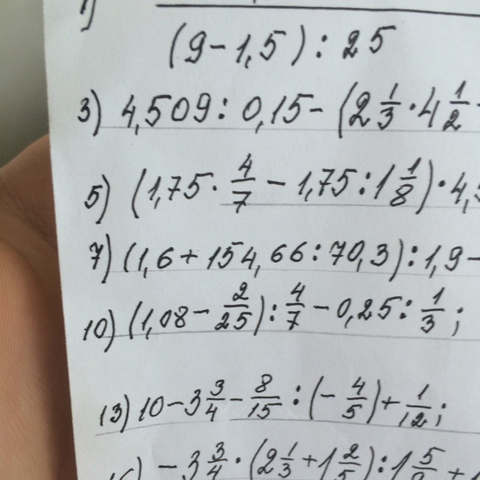 1)
(9-1,5):25
3) 4,509:0,15-(2 1/3 · 4 1/2
5) (1,75 · 4/7 - 1,75:1 1/8) · 4,
7) (1,6+154,66:70,3):1,9-
10) (1,08 - 2/25) : 4/7 - 0,25 : 1/3;
13) 10-3 3/4 - 8/15 : (-4/5) + 1/12;
-3 3/4 · (2 1/3 + 1 2/5) : 1 5/